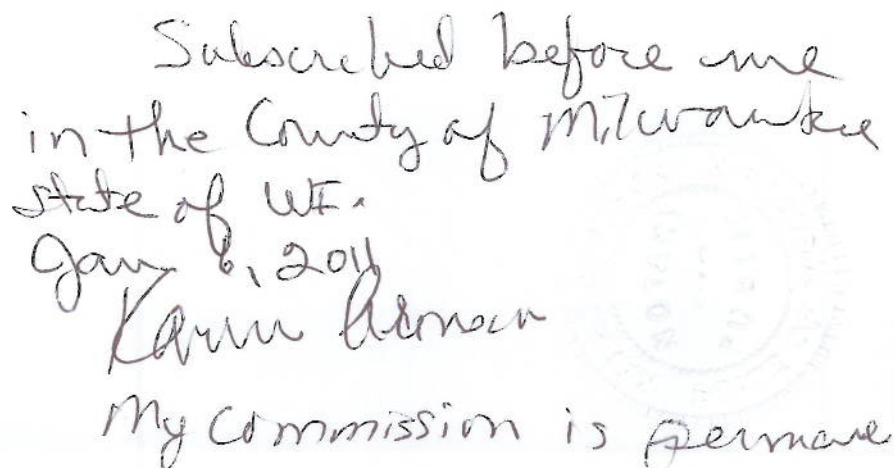 Subscribed before me
in the County of Milwaukee
state of WI.
Jan 6, 2011
My Commission is permane